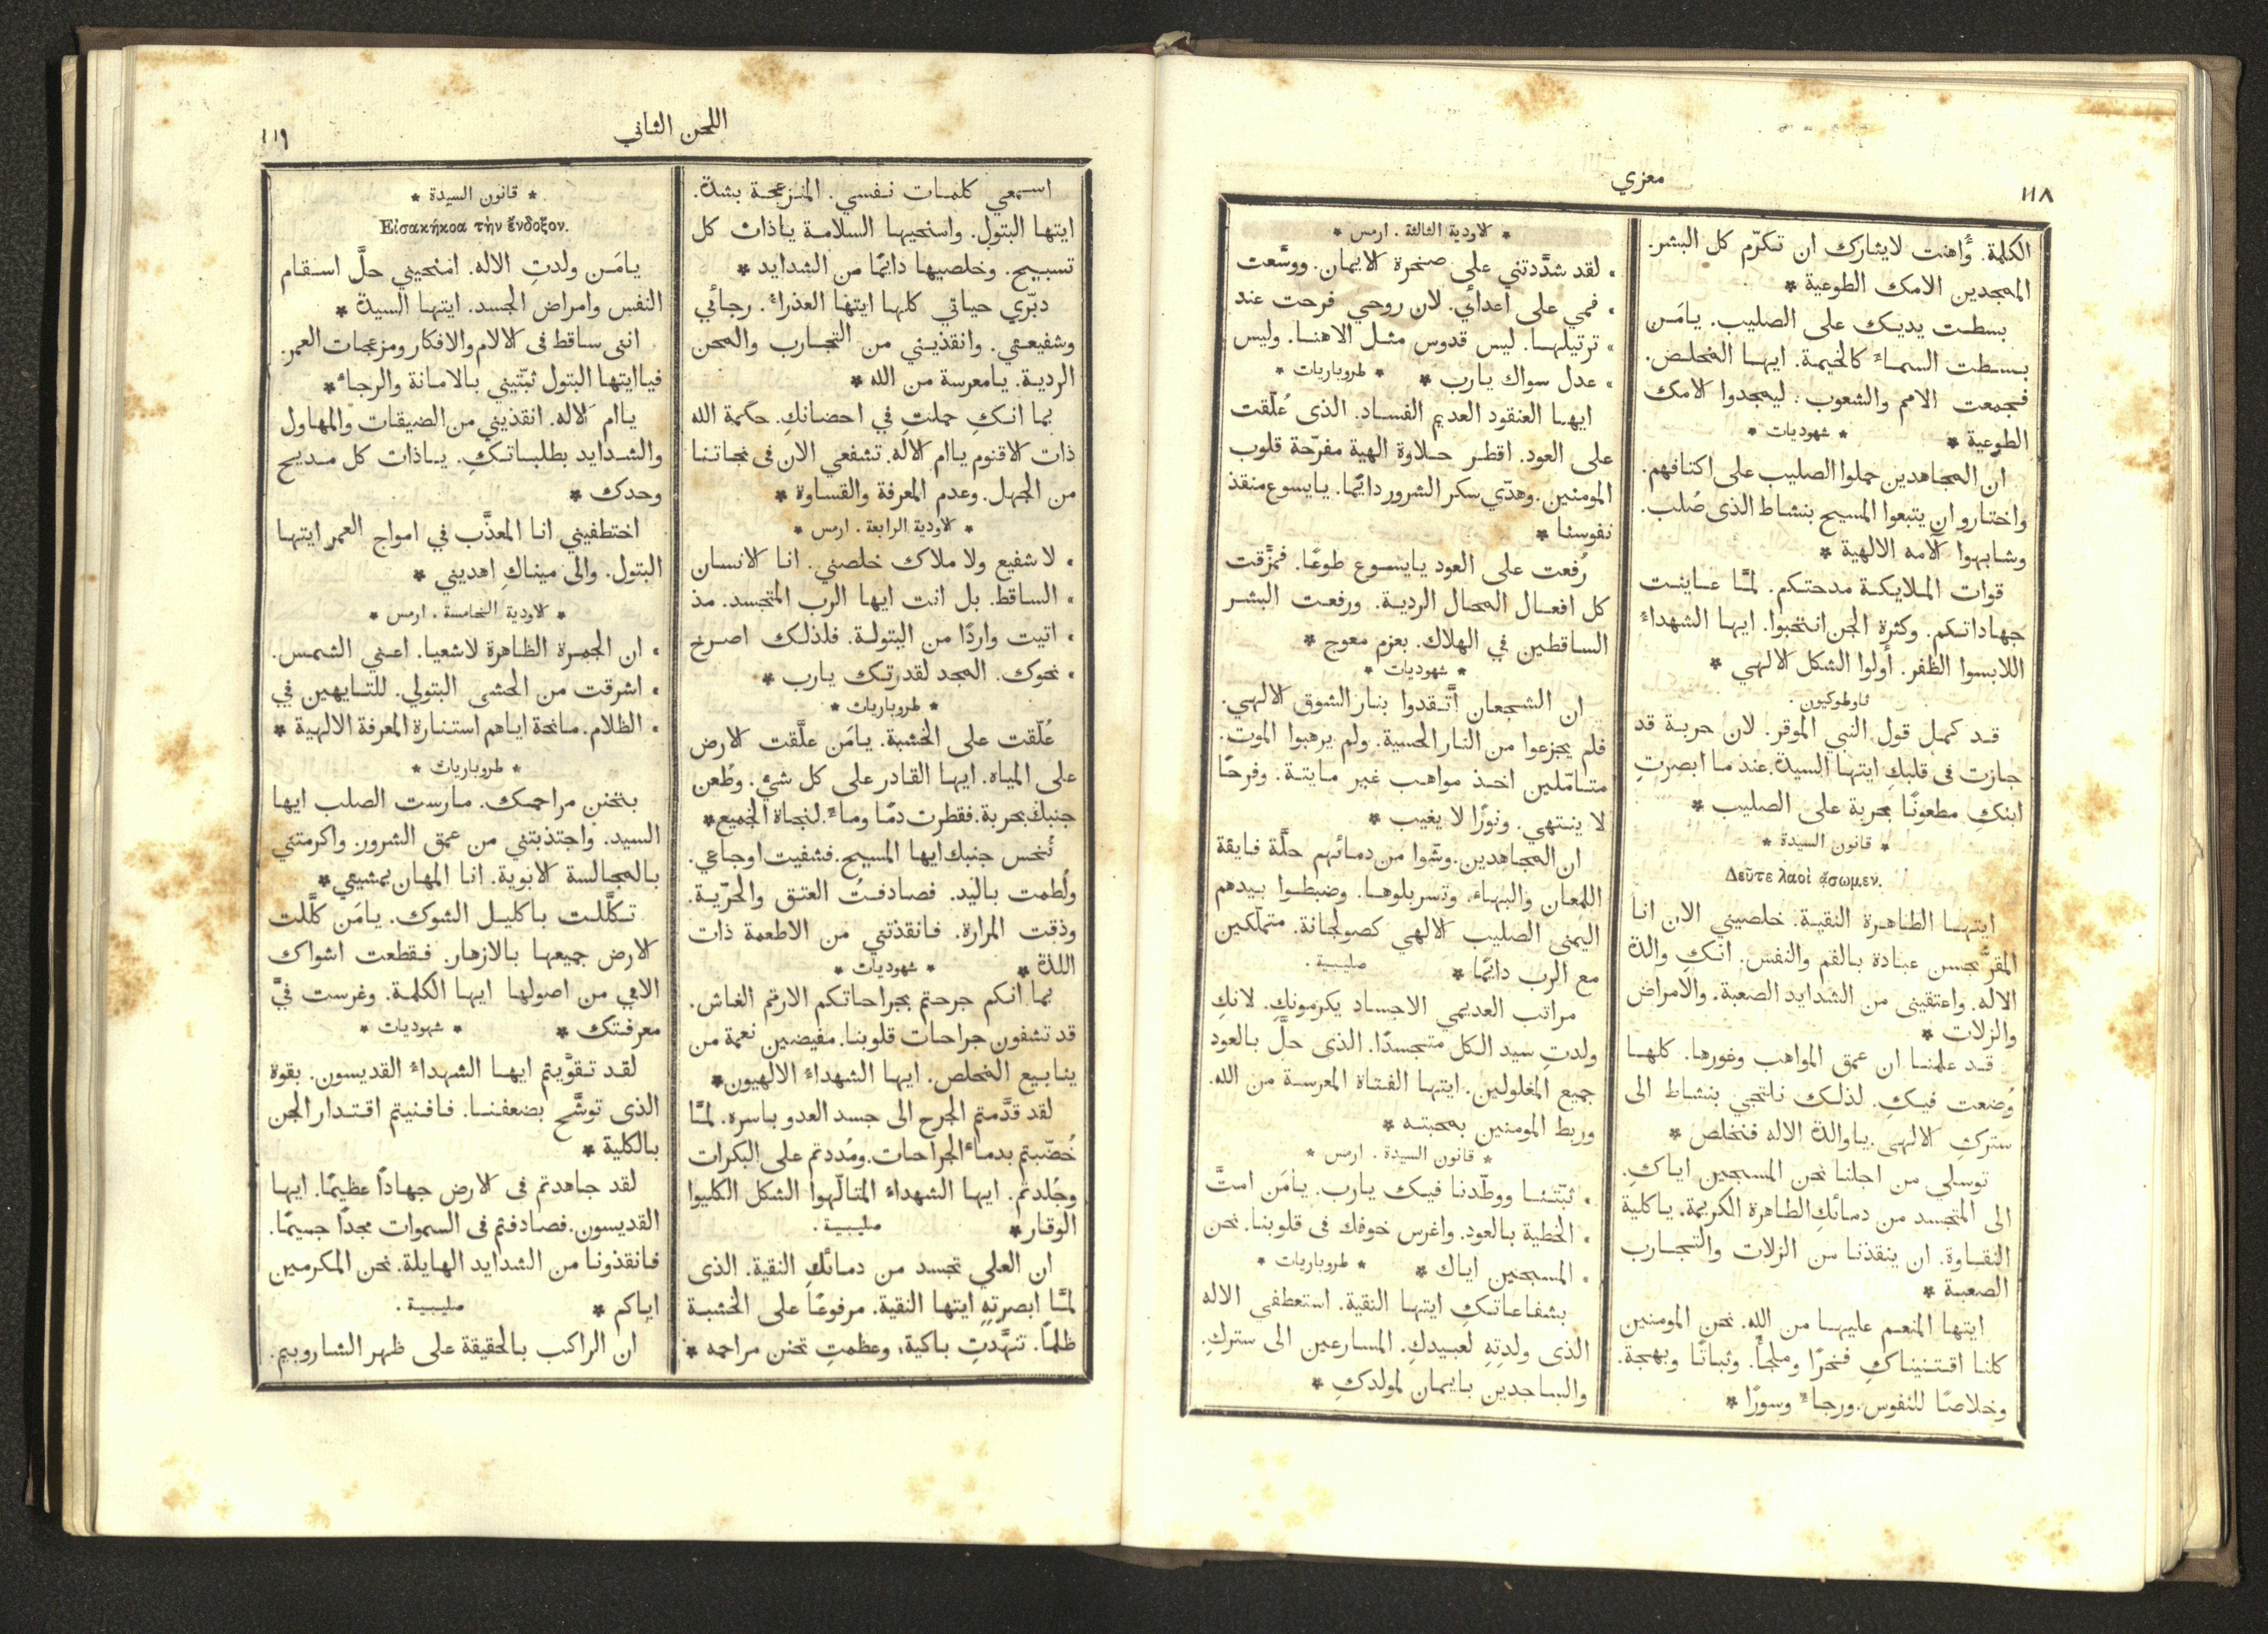 ١١٨
معزي
الكلمة. وأهنت لايشارك ان تكرّم كل البشر.
الممجدين الامك الطوعية *
بسطت يديك على الصليب. يامَن
بسطت السماء كالخيمة. ايها المخلص.
فجمعت الامم والشعوب. ليمجدوا الامك
الطوعية * * شهوديات *
ان المجاهدين حملوا الصليب على اكتافهم.
واختارو ان يتبعوا المسيح بنشاط الذى صُلب.
وشابهوا الامه الالهية *
قوات الملايكة مدحتكم. لمَّا عاينت
جهاداتكم. وكثرة الجن انتحبوا. ايها الشهداء
اللابسوا الظفر. أولوا الشكل الالهي *
ثاوطوكيون.
قد كمل قول النبي الموقر. لان حربة قد
جازت فى قلبكِ ايتها السيدة. عند ما ابصرتِ
ابنكِ مطعونًا بحربة على الصليب *
* قانون السيدة *
Δεῦτε λαοὶ ᾄσωμεν.
ايتها الطاهرة النقية. خلصيني الان انا
المقرُّ بحسن عبادة بالفم والنفس. انكِ والدة
الاله. واعتقينى من الشدايد الصعبة. والامراض
والزلات *
قد علمنا ان عمق المواهب وغورها. كلها
وُضعت فيك. لذلك نلتجي بنشاط الى
ستركِ الالهى. ياوالدة الاله فنخلص *
توسلي من اجلنا نحن المسبحين اياكِ.
الى المتجسد من دمائكِ الطاهرة الكريمة. ياكلية
النقاوة. ان ينقذنا من الزلات والتجارب
الصعبة *
ايتها المنعم عليها من الله. نحن المومنين
كلنا اقتنيناكِ فخرًا وملجأً. وثباتًا وبهجة.
وخلاصًا للنفوس. ورجاءً وسورًا *
* الاودية الثالثة. ارمس *
• لقد شدَّدتني على صخرة الايمان. ووسَّعت
• فمي على اعدائي. لان روحي فرحت عند
• ترتيلها. ليس قدوس مثل الاهنا. وليس
• عدل سواك يارب * * طروباريات *
ايها العنقود العديم الفساد. الذى عُلّقت
على العود. اقطر حلاوة الهية مفرّحة قلوب
المومنين. وهدّي سكر الشرور دايمًا. يايسوع منقذ
نفوسنا *
رُفعت على العود يايسوع طوعًا. فمزَّقت
كل افعال المحال الردية. ورفعت البشر
الساقطين في الهلاك. بعزم معوج *
* شهوديات *
ان الشجعان اتَّقدوا بنار الشوق الالهي.
فلم يجزعوا من النار الحسية. ولم يرهبوا الموت.
متاملين اخذ مواهب غير مايتة. وفرحًا
لا ينتهي. ونورًا لا يغيب *
ان المجاهدين. وشّوا من دمائهم حلَّة فايقة
اللمعان والبهاء. وتسربلوها. وضبطوا بيدهم
اليمنى الصليب الالهي كصولجانة. متملّكين
مع الرب دايمًا * صليبية.
مراتب العديمي الاجساد يكرمونكِ. لانكِ
ولدتِ سيد الكل متجسدًا. الذى حلَّ بالعود
جميع المغلولين. ايتها الفتاة المعرسة من الله.
وربط المومنين بمحبته *
* قانون السيدة. ارمس *
• ثبّتنا ووطّدنا فيك يارب. يامَن امتَّ
• الخطية بالعود. واغرس خوفك فى قلوبنا. نحن
• المسبحين اياك * * طروباريات *
بشفاعاتكِ ايتها النقية. استعطفي الاله
الذى ولدتِهِ لعبيدكِ. المسارعين الى ستركِ.
والساجدين بايمان لمولدكِ *
اللحن الثاني
١١٩
اسمعي كلمات نفسي. المنزعجة بشدة.
ايتها البتول. وامنحيها السلامة ياذات كل
تسبيح. وخلصيها دايمًا من الشدايد *
دبّري حياتي كلها ايتها العذراء. رجائي
وشفيعتي. وانقذيني من التجارب والمحن
الردية. يامعرسة من الله *
بما انكِ حملتِ في احضانكِ. حكمة الله
ذات الاقنوم ياام الاله. تشفعي الان فى نجاتنا
من الجهل. وعدم المعرفة والقساوة *
* الاودية الرابعة. ارمس *
• لا شفيع ولا ملاك خلصني. انا الانسان
• الساقط. بل انت ايها الرب المتجسد. مذ
• اتيت واردًا من البتولة. فلذلك اصرخ
• نحوك. المجد لقدرتك يارب *
* طروباريات *
عُلّقت على الخشبة. يامَن علَّقت الارض
على المياه. ايها القادر على كل شيء. وطُعن
جنبك بحربة. فقطرت دمًا وماءً. لنجاة الجميع *
نُخس جنبك ايها المسيح. فشفيت اوجاعي.
ولُطمت باليد. فصادفتُ العتق والحرّية.
وذقت المرارة. فانقذتني من الاطعمة ذات
اللذة * * شهوديات *
بما انكم جرحتم بجراحاتكم الارقم الغاش.
قد تشفون جراحات قلوبنا. مفيضين نعمة من
ينابيع المخلص. ايها الشهداء الالهيون *
لقد قدَّمتم الجرح الى جسد العدو باسره. لمَّا
خُضّبتم بدماء الجراحات. ومُددتم على البكرات
وجُلدتم. ايها الشهداء المتالّهوا الشكل الكليوا
الوقار * صليبية.
ان العلي تجسد من دمائكِ النقية. الذى
لمَّا ابصرتِهِ ايتها النقية. مرفوعًا على الخشبة
ظلمًا. تنهَّدتِ باكية. وعظمتِ تحنن مراحمه *
* قانون السيدة *
Εἰσακήκοα τὴν ἔνδοξον.
يامَن ولدتِ الاله. امنحيني حلَّ اسقام
النفس وامراض الجسد. ايتها السيدة *
اننى ساقط فى الالام والافكار ومزعجات العمر.
فياايتها البتول ثبّتيني بالامانة والرجاء *
ياام الاله. انقذيني من الضيقات والمهاول
والشدايد بطلباتكِ. ياذات كل مديح
وحدك *
اختطفيني انا المعذَّب في امواج العمر ايتها
البتول. والى ميناكِ اهديني *
* الاودية الخامسة. ارمس *
• ان الجمرة الظاهرة لاشعيا. اعني الشمس.
• اشرقت من الحشى البتولي. للتايهين في
• الظلام. مانحة اياهم استنارة المعرفة الالهية *
* طروباريات *
بتحنن مراحمك. مارست الصلب ايها
السيد. واجتذبتني من عمق الشرور. واكرمتني
بالمجالسة الابوية. انا المهان بمشيءتي *
تكلَّلت باكليل الشوك. يامَن كلَّلت
الارض جميعها بالازهار. فقطعت اشواك
الامي من اصولها ايها الكلمة. وغرست فيَّ
معرفتك * * شهوديات *
لقد تقوَّيتم ايها الشهداء القديسون. بقوة
الذى توشَّح بضعفنا. فافنيتم اقتدار الجن
بالكلية *
لقد جاهدتم فى الارض جهادًا عظيمًا. ايها
القديسون. فصادفتم فى السموات مجدًا جسيمًا.
فانقذونا من الشدايد الهايلة. نحن المكرمين
اياكم * صليبية.
ان الراكب بالحقيقة على ظهر الشاروبيم.